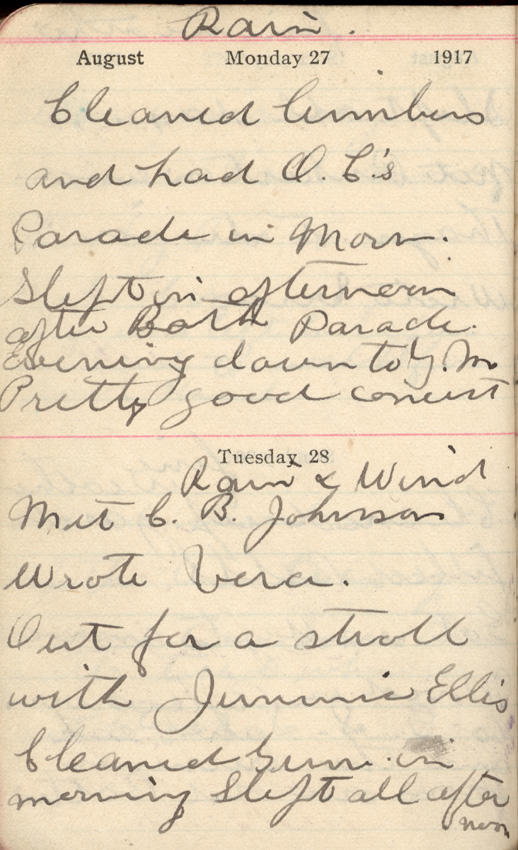 Rain.
August Monday 27 1917
Cleaned limbers
and had O. C.'s
Parade in Morn.
Slept in afternoon
after Bath Parade.
Evening down to Y. M
Pretty good concert
Tuesday 28
Rain & Wind
Met C. B. Johnson
Wrote Vera.
Out for a stroll
with Jimmie Ellis
Cleaned Gun in
morning Slept all after
noon